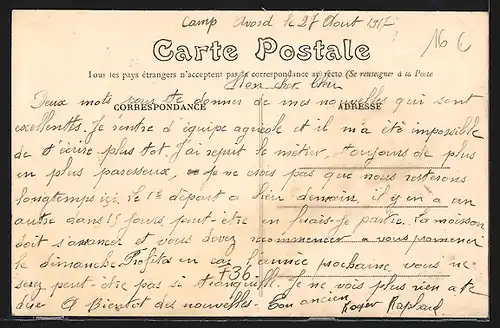 Camp Avord le 27 Aout 191
16 €
Carte Postale
Tous les pays étrangers n'acceptent pas la correspondance au recto (Se renseigner à la Poste
Mon cher
CORRESPONDANCE
ADRESSE
Deux mots pour te donner de mes nouvelles qui sont
excellentes. Je rentre d'équipe agricole et il m'a été impossible
de t'écrire plus tot. J'ai repris le métier, toujours de plus
en plus paresseux, je ne crois pas que nous resterons
longtemps ici. Le 1er départ a lieu demain, il y en a un
autre dans 15 jours, peut-être en ferais-je partie. La moisson
doit s'avancer et vous devez recommencer a vous promener
le dimanche. Profitez en car l'année prochaine, vous ne
serez peut-être pas si tranquille. Je ne vois plus rien a te
T36.
dire A Bientot des nouvelles. Ton ancien Roger Raphael